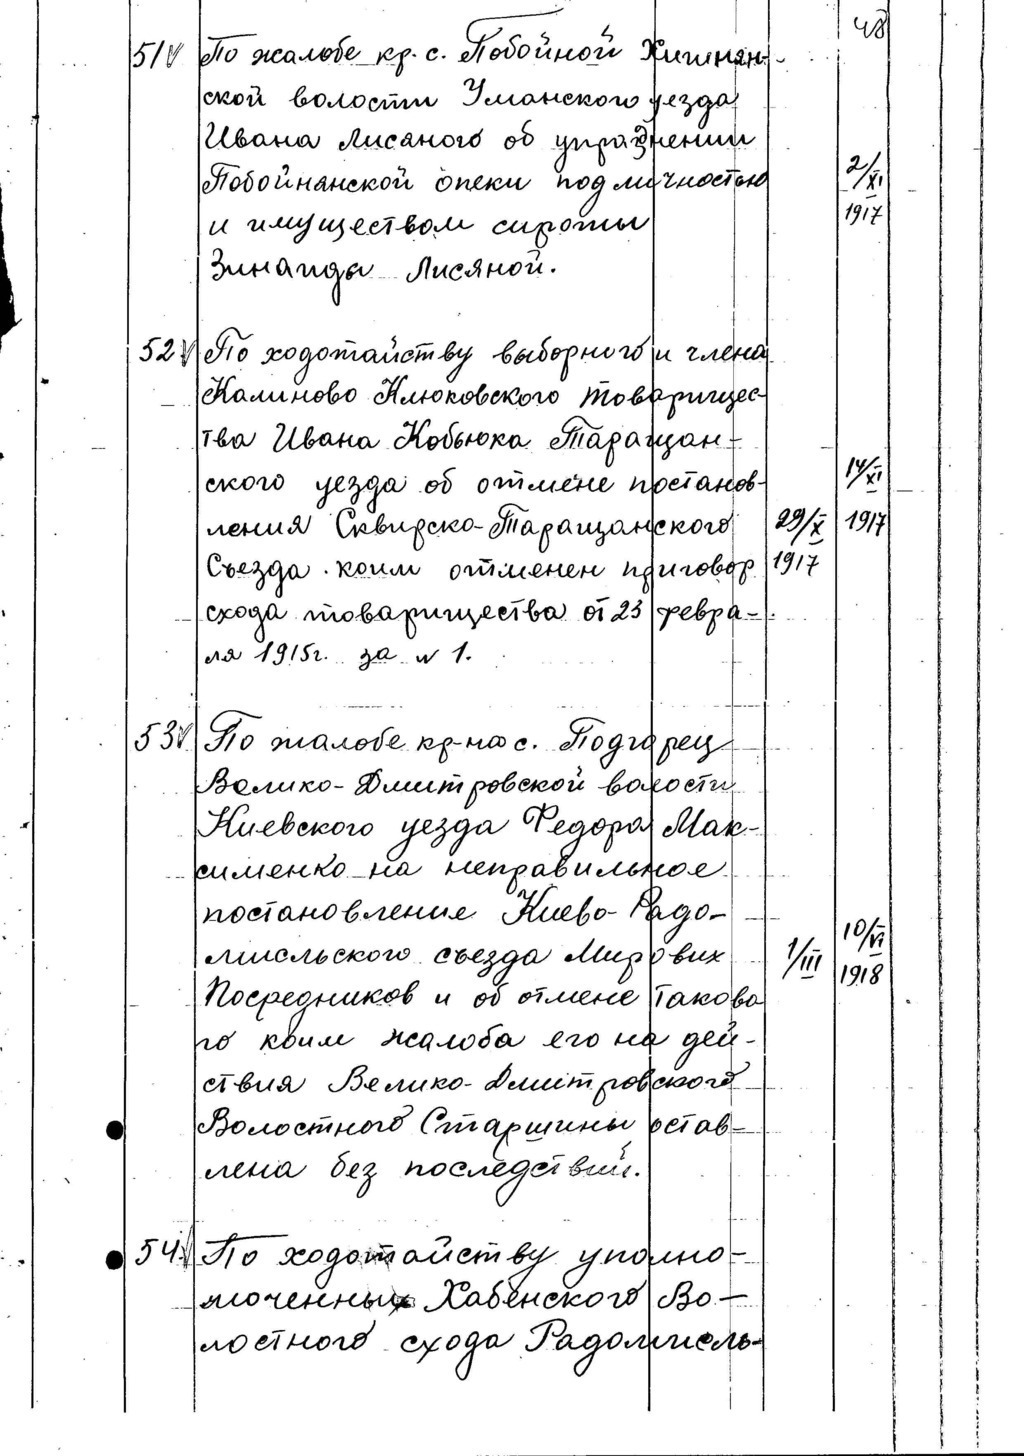 48
51 По жалобе кр. с. Побойной Хижнян-
ской волости Уманского уезда
Ивана Лисяного об упразднении
Побойнянской опеки под личностью
и имуществом сироты
Зинаиды Лисяной.
2/XI
1917
52 По ходотайству выборного и члена
Калиново Клюковского товарищес-
тва Ивана Кобьюка Таращан-
ского уезда об отмене постанов-
ления Сквирско-Таращанского
Съезда коим отменен приговор
схода товарищества от 23 февра-
ля 1915г. за № 1.
29/X
1917
14/XI
1917
53 По жалобе кр-на с. Подгорец
Велико-Дмитровской волости
Киевского уезда Федора Мак-
сименко на неправильное
постановление Киево-Радо-
мисльского съезда Мирових
Посредников и об отмене такова
го коим жалоба его на дей-
ствия Велико-Дмитровского
Волостного Старшины остав-
лена без последствий.
1/III
10/VI
1918
54 По ходотайству уполно-
моченных Хабенского Во-
лостного схода Радомисль-